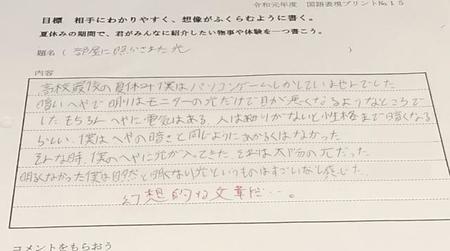 令和元年度 国語表現プリントNo.15
目標 相手にわかりやすく、想像がふくらむように書く。
夏休みの期間で、君がみんなに紹介したい物事や体験を一つ書こう。
題名（部屋に照らされた光
内容
高校最後の夏休み僕はパソコンゲームしかしていませんでした
暗いへやで明りはモニターの光だけで目が悪くなるようなところで
した もちろんへやに電気はある 人は明りがないと性格まで暗くなる
らしい 僕はへやの暗さと同じように明るくはなかった
そんな時、僕のへやに光が入ってきた それは太陽の光だった
明るくなかった僕は
光というものはすごいなと感じた
幻想的な文章だ…。
コメントをもらおう